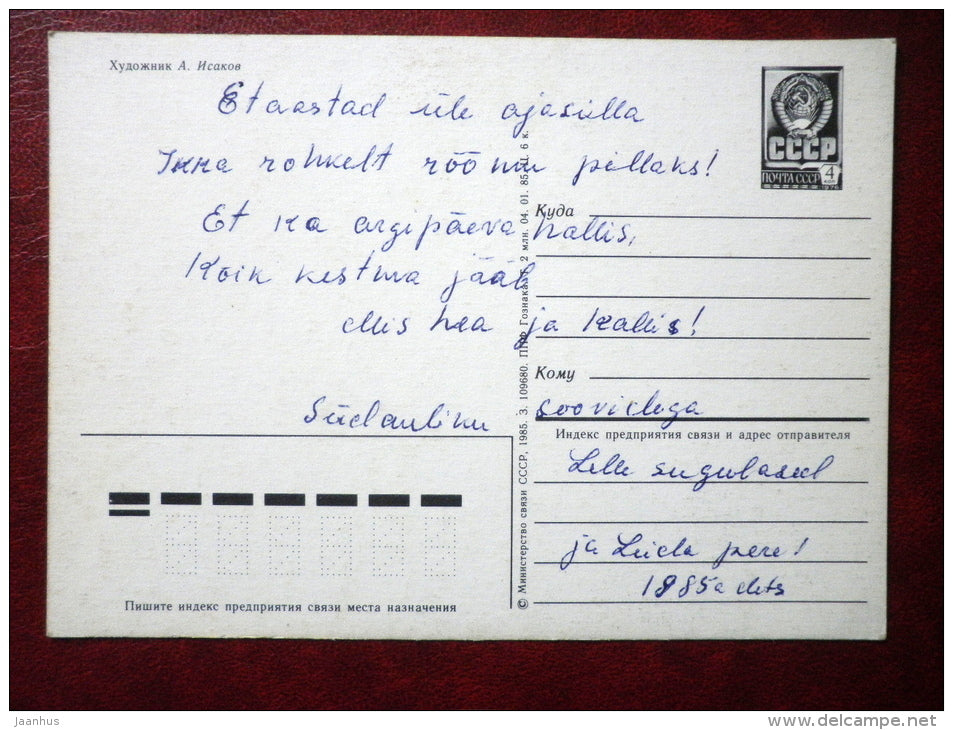 Художник А. Исаков
СССР
ПОЧТА СССР 4 КОП
1976
Et aastad üle ajasilla
Ikka rohkelt rõõmu pillaks!
Et ka argipäeva hallis,
Kõik kestma jääb
Mis hea ja kallis!
Südamliku soovidega
Lelle sugulased
ja Leida pere!
1985a dets
Куда
Кому
Индекс предприятия связи и адрес отправителя
© Министерство связи СССР, 1985. З. 109680. ППФ Гознака. Т. 2 млн. 04. 01. 85. Ц. 6 к.
Пишите индекс предприятия связи места назначения
jaanhus
www.delcampe.net